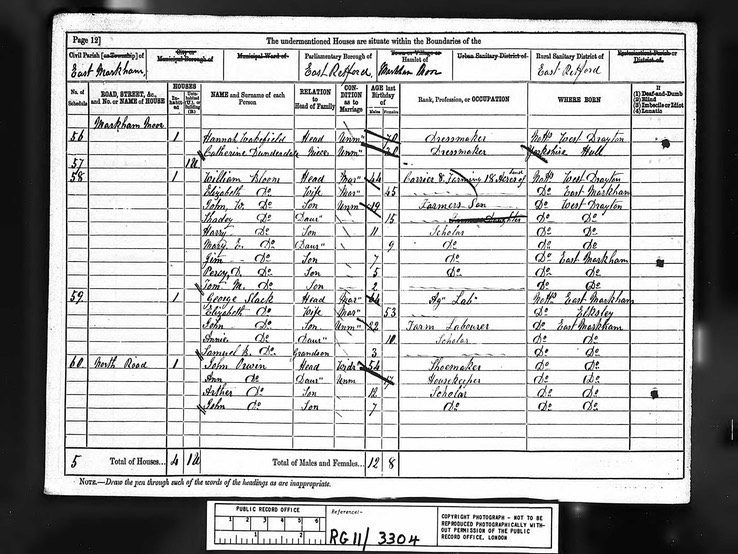 Page 12] The undermentioned Houses are situate within the Boundaries of the
Civil Parish [or Township] of City or Municipal Borough of Municipal Ward of Parliamentary Borough of Town or Village or Hamlet of Urban Sanitary District of Rural Sanitary District of Ecclesiastical Parish or District of
East Markham, East Retford, Markham Moor East Retford
No. of Schedule ROAD, STREET, &c., and No. or NAME of HOUSE HOUSES Inhabited Uninhabited (U.), or Building (B.) NAME and Surname of each Person RELATION to Head of Family CONDITION as to Marriage AGE last Birthday of Males Females Rank, Profession, or OCCUPATION WHERE BORN If (1) Deaf-and-Dumb (2) Blind (3) Imbecile or Idiot (4) Lunatic
Markham Moor
56 1 Hannah Wakefield Head Unm" 70 Dressmaker Notts West Drayton
Catherine Niece Unm" Dressmaker Yorkshire Hull
57 1U
58 1 William Head Mar" 44 Carrier & Farming 18 Acres of land Notts West Drayton
Elizabeth Do Wife Mar" 45 Do East Markham
John, W. Do Son Unm" 19 Farmers Son Do West Drayton
Do Daur" 15 Farmers Daughter Do Do
Harry Do Son 11 Scholar Do Do
Mary E. Do Daur" 9 Do Do Do
Jim Do Son 7 Do Do East Markham
Percy, D. Do Son 5 Do Do Do
Tom M. Do Son 2 Do Do
59 1 George Slack Head Mar" 64 Ag" Lab" Notts East Markham
Elizabeth Do Wife Mar" 53 Do Elksley
John Do Son Unm" 22 Farm Labourer Do East Markham
Annie Do Daur" 10 Scholar Do Do
Samuel Do Grandson 3 Do Do
60 North Road 1 John Orwin Head Widr 54 Shoemaker Do Do
Ann Do Daur" Unm Housekeeper Do Do
Arther Do Son 12 Scholar Do Do
John Do Son 7 Do Do Do
5 Total of Houses... 4 1U Total of Males and Females... 12 8
NOTE.—Draw the pen through such of the words of the headings as are inappropriate.
PUBLIC RECORD OFFICE
1 2 3 4 5 6
1 2
Reference:-
RG 11/ 3304
COPYRIGHT PHOTOGRAPH - NOT TO BE REPRODUCED PHOTOGRAPHICALLY WITHOUT PERMISSION OF THE PUBLIC RECORD OFFICE, LONDON